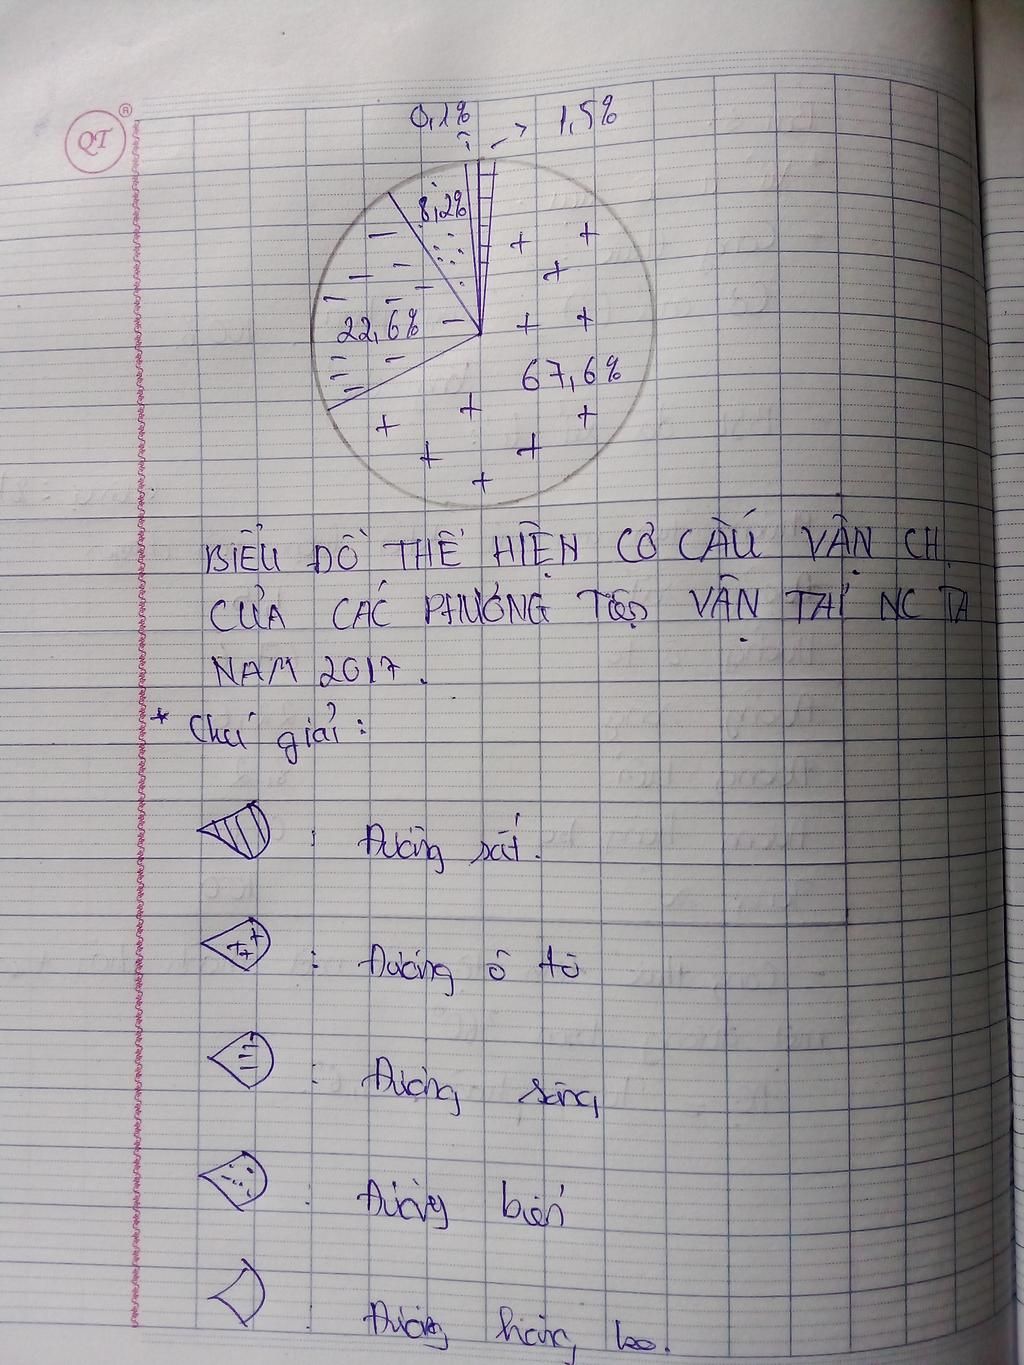 QT ®
0,1% 1,5%
8,2%
22,6%
67,6%
BIỂU ĐỒ THỂ HIỆN CƠ CẤU VẬN CH
CỦA CÁC PHƯƠNG VẬN TẢI NC TA
NĂM 2017.
* Chú giải:
: Đường sắt.
: Đường ô tô
: Đường sông
: Đường biển
: Đường hàng ko.